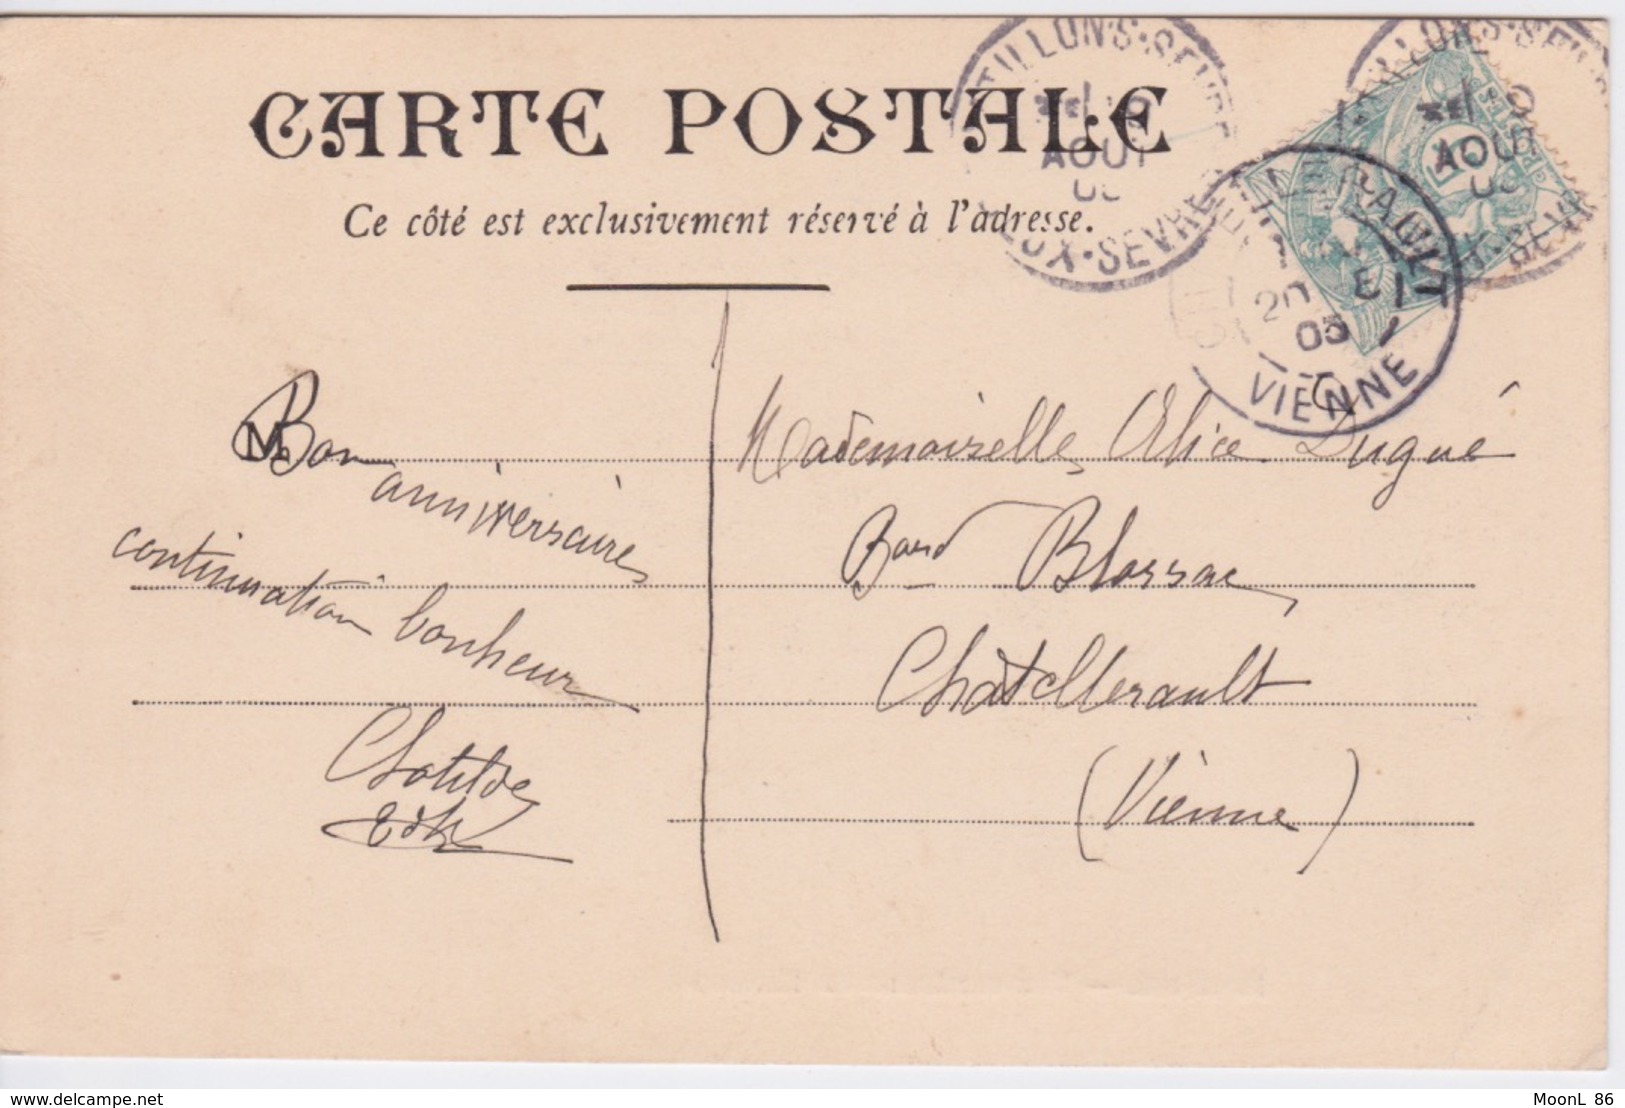 CARTE POSTALE
Ce côté est exclusivement réservé à l'adresse.
TILLON S. SEVRE
AOUT
DEUX-SEVRES
AOUT
CHATELLERAULT
20
05
VIENNE
M
Bon
anniversaire
continuation bonheur
Clotilde
Mademoiselle Alice Dugué
Bard Blossac
Châtellerault
(Vienne)
www.delcampe.net
MoonL 86